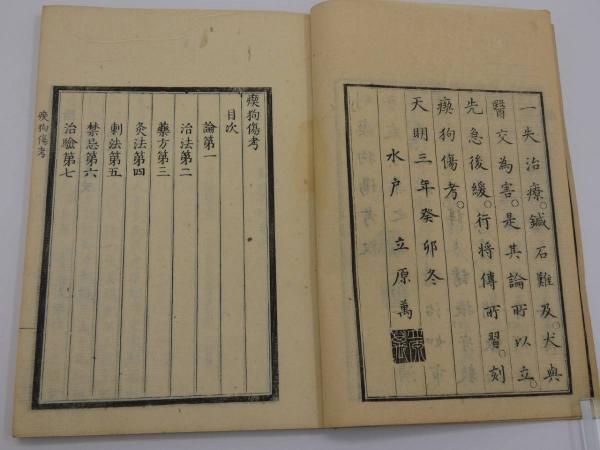 一失治療。鍼石難及。犬與
醫交為害。是其論所以立。
先急後緩。行將傳所習。刻
瘈狗傷考。
天明三年癸卯冬
水戶立原萬
瘈狗傷考
目次
論第一
治法第二
藥方第三
灸法第四
刺法第五
禁忌第六
治驗第七
瘈狗傷考